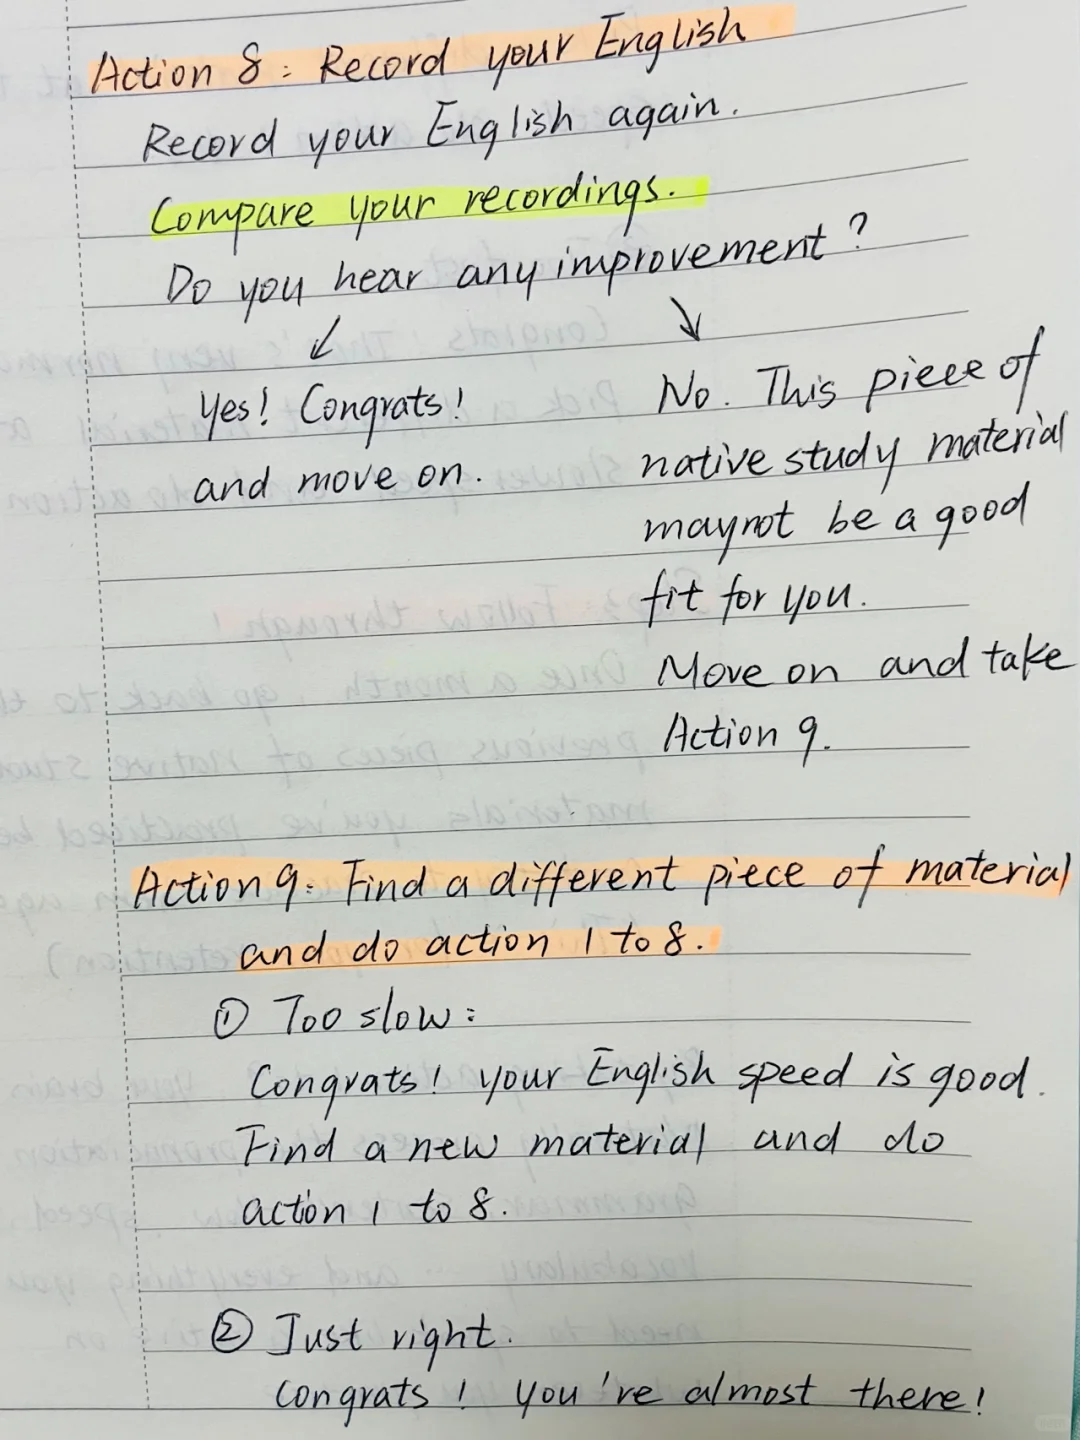 Action 8: Record your English
Record your English again.
Compare your recordings.
Do you hear any improvement?
Yes! Congrats!
and move on.
No. This piece of
native study material
may not be a good
fit for you.
Move on and take
Action 9.
Action 9: Find a different piece of material
and do action 1 to 8.
① Too slow:
Congrats! your English speed is good.
Find a new material and do
action 1 to 8.
② Just right.
Congrats! You're almost there!